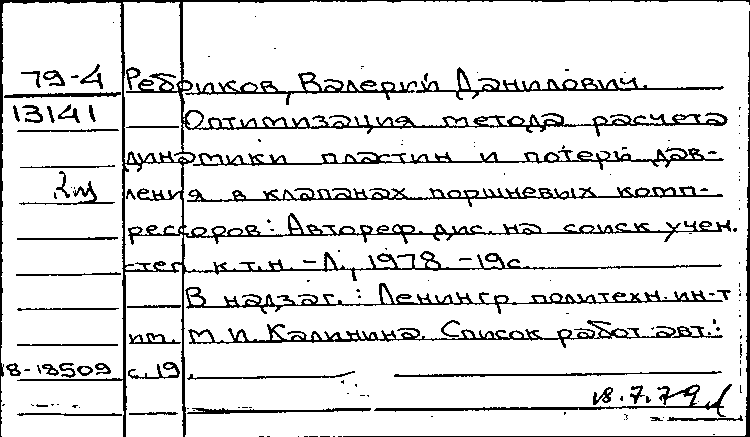 79-4 Ребриков, Валерий Данилович.
13141 Оптимизация метода расчета
динамики пластин и потерь дав-
ления в клапанах поршневых комп-
рессоров: Автореф. дис. на соиск учен.
степ к.т.н. -Л., 1978. -19с.
В надзаг.: Ленингр. политехн. ин-т
им. М.И. Калинина. Список работ авт.:
18-18509 с.19.
18.7.79